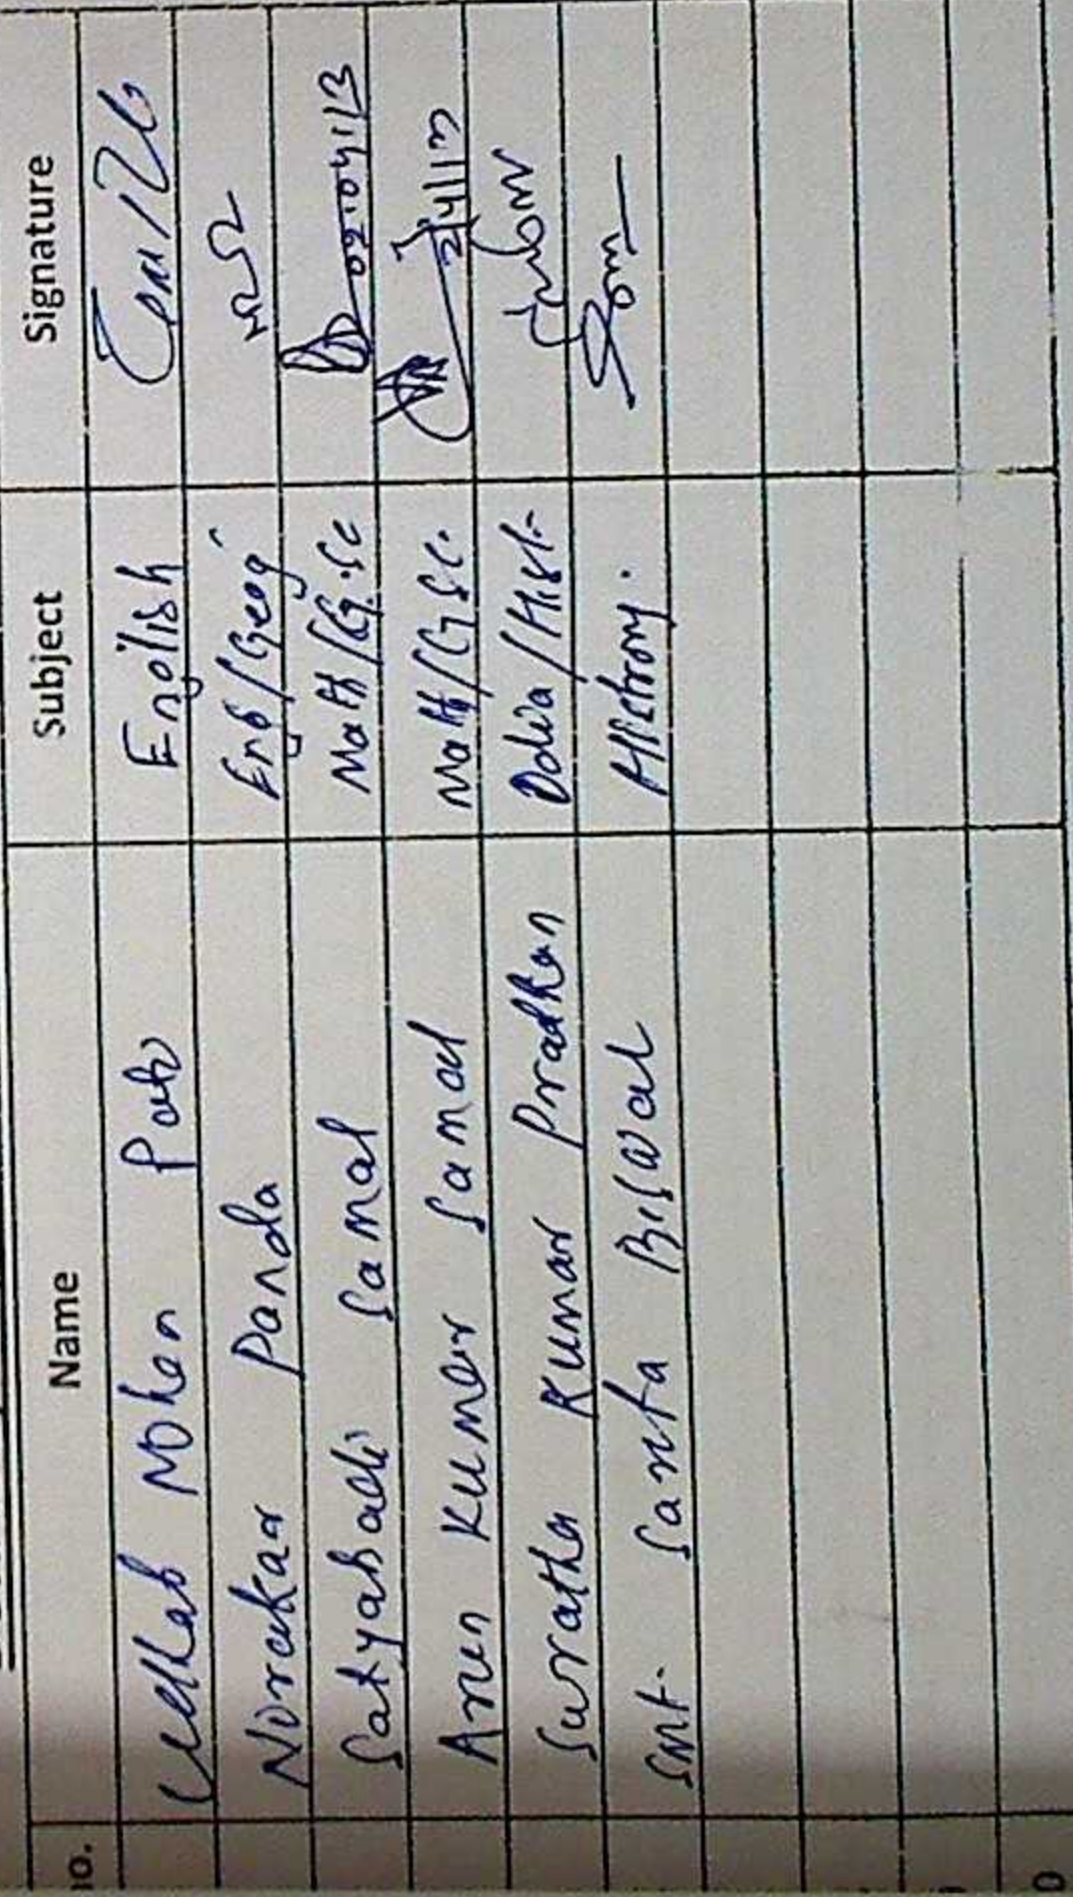 no. Name Subject Signature
Udhab Mohan Pati English
Nirakar Panda Eng/Geog
Satyabadi Samal Math/G.Sc 02.04.13
Arun Kumar Samal Math/G.Sc. 2/4/13
Suratha Kumar Pradhan Odia/Hist.
Smt. Santa Biswal History.
0